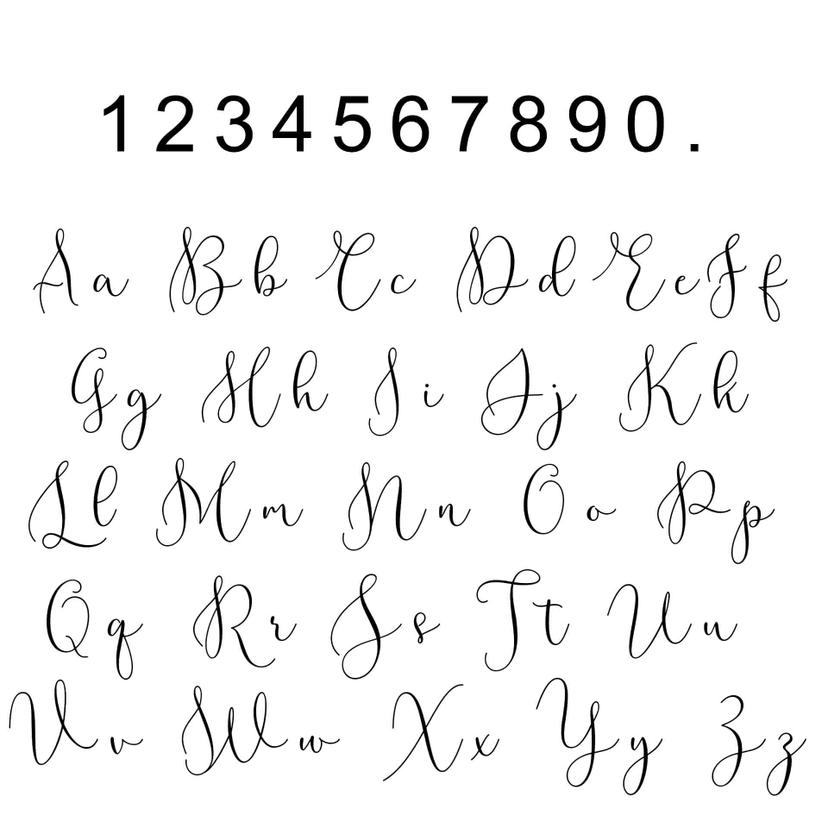 1 2 3 4 5 6 7 8 9 0 .
A a B b C c D d E e F f
G g H h I i J j K k
L l M m N n O o P p
Q q R r S s T t U u
V v W w X x Y y Z z